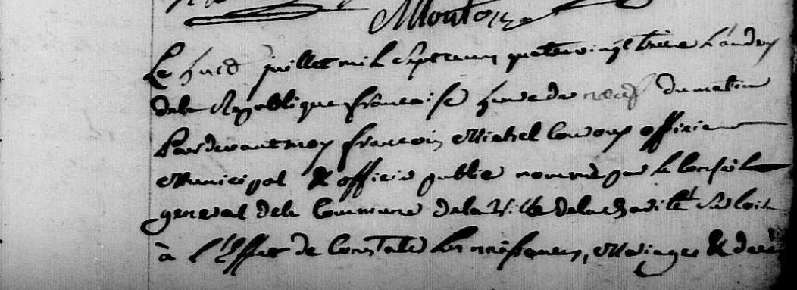 Montozon
Le huit juillet mil sept cens quatre vingt treize L'an deux
de la Republique francaise heure de neuf du matin
Pardevant moy francois Michel officier
Municipal & officier public nommé par le Conseil
general de la Commune de la Ville de la charité Sur loire
à l'Effet de Constater les naissances, Mariages & deces